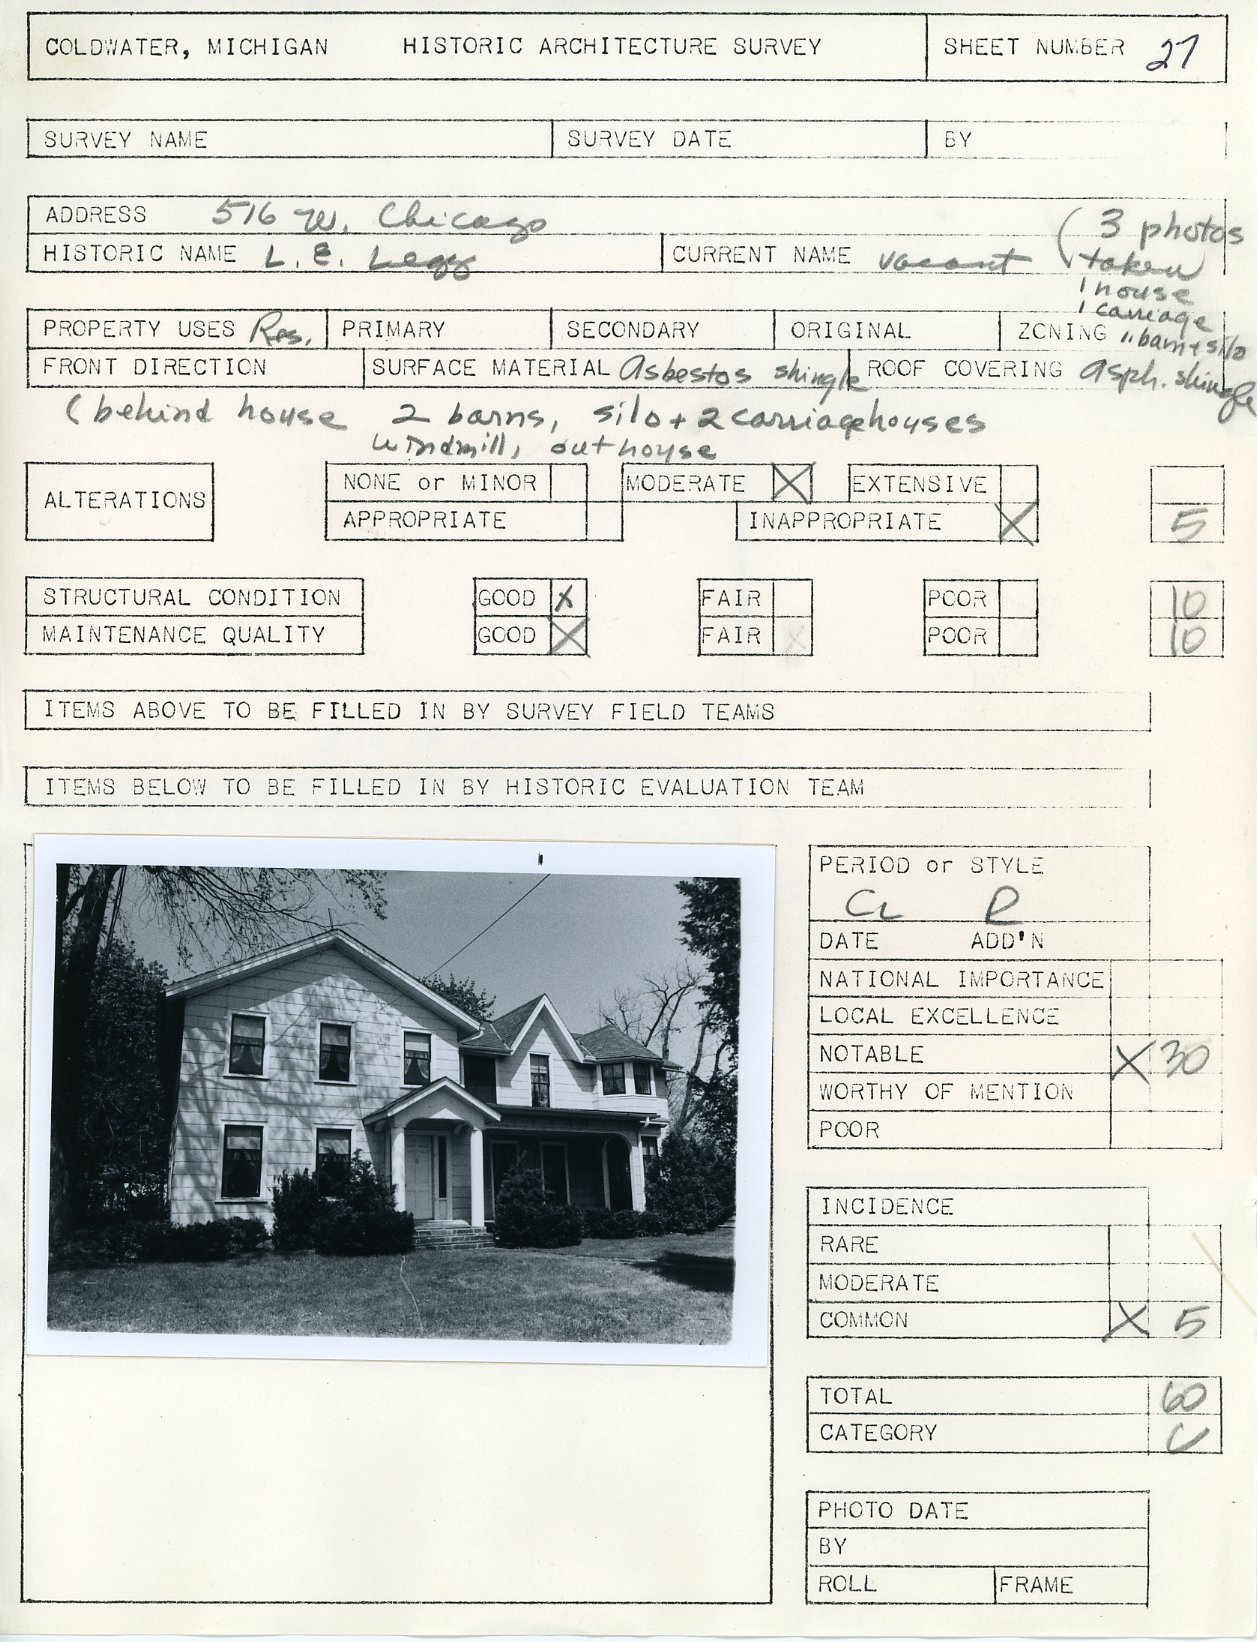 COLDWATER, MICHIGAN HISTORIC ARCHITECTURE SURVEY SHEET NUMBER 27
SURVEY NAME SURVEY DATE BY
ADDRESS 516 W. Chicago
HISTORIC NAME L. E. Legg CURRENT NAME vacant
(3 photos
taken
1 house
1 carriage
" barn + silo
PROPERTY USES Res. PRIMARY SECONDARY ORIGINAL ZONING
FRONT DIRECTION SURFACE MATERIAL Asbestos shingle ROOF COVERING asph. shingle
(behind house 2 barns, silo + 2 carriagehouses
windmill, outhouse
ALTERATIONS NONE or MINOR MODERATE X EXTENSIVE
APPROPRIATE INAPPROPRIATE X 5
STRUCTURAL CONDITION GOOD X FAIR POOR 10
MAINTENANCE QUALITY GOOD X FAIR X POOR 10
ITEMS ABOVE TO BE FILLED IN BY SURVEY FIELD TEAMS
ITEMS BELOW TO BE FILLED IN BY HISTORIC EVALUATION TEAM
PERIOD or STYLE
R
DATE ADD'N
NATIONAL IMPORTANCE
LOCAL EXCELLENCE
NOTABLE X 30
WORTHY OF MENTION
POOR
INCIDENCE
RARE
MODERATE
COMMON X 5
TOTAL 60
CATEGORY
PHOTO DATE
BY
ROLL FRAME